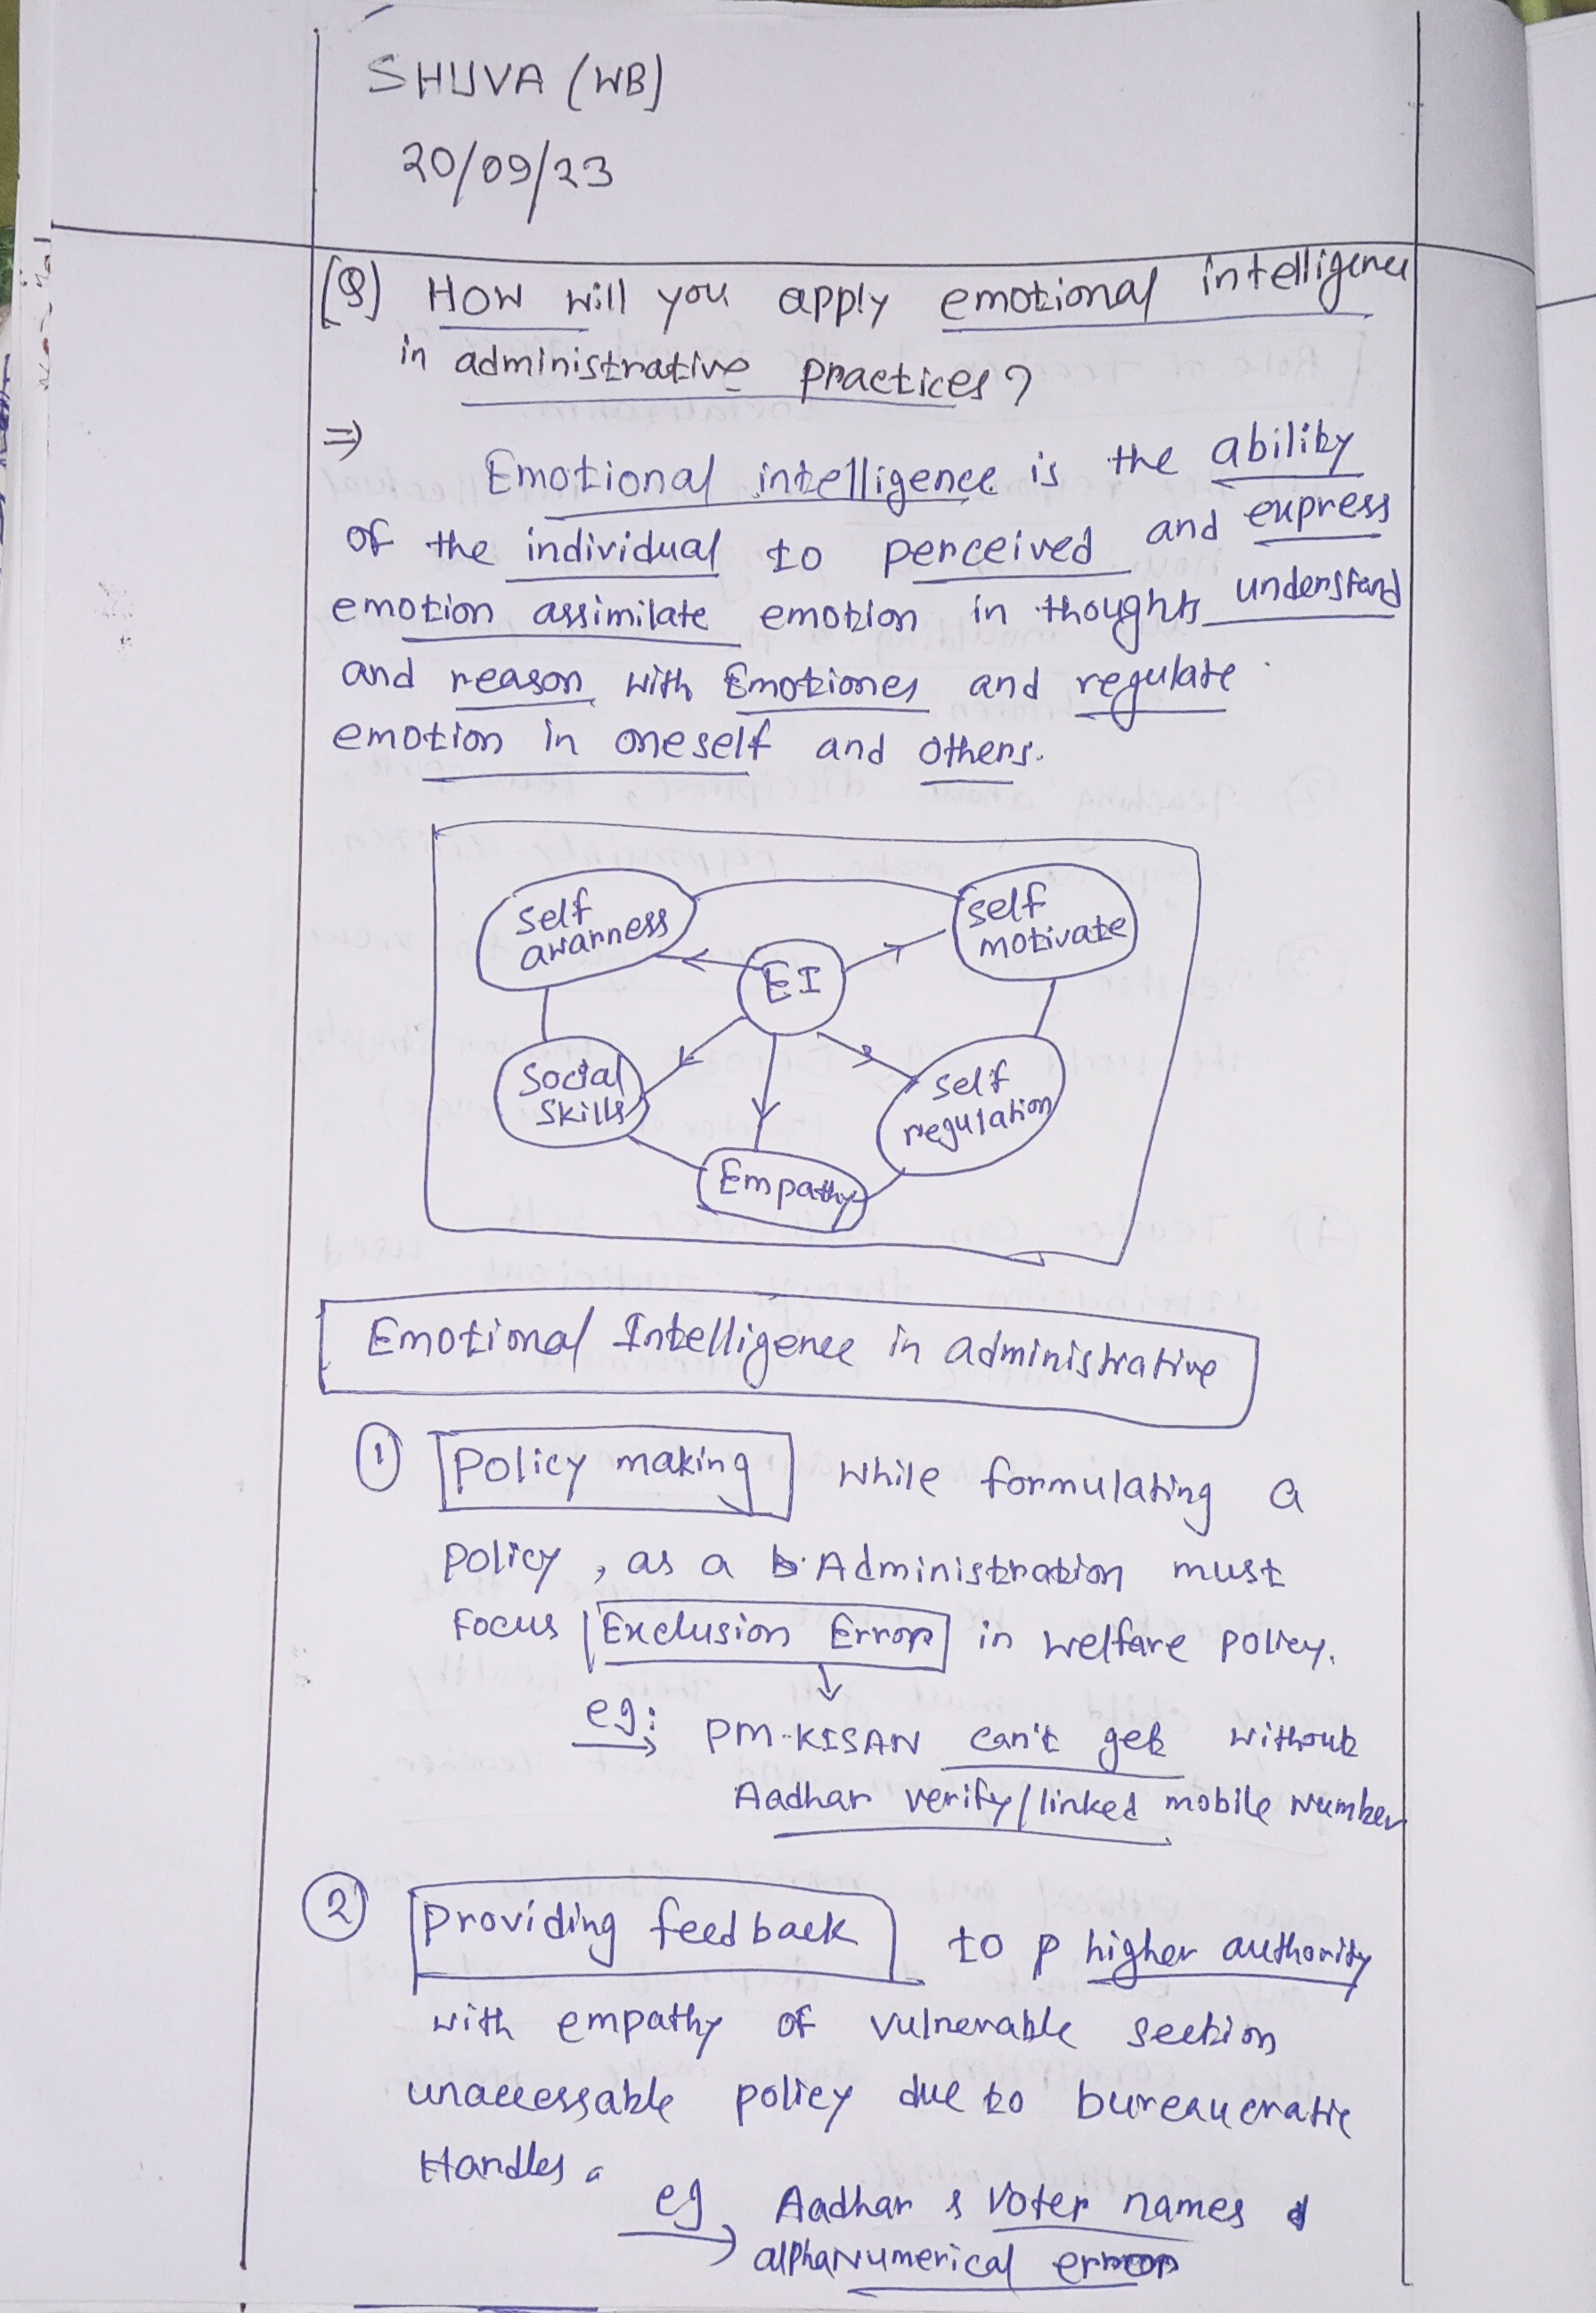 SHUVA (WB)
20/09/23
[Q] HOW will you apply emotional intelligence
in administrative practices?
⇒ Emotional intelligence is the ability
of the individual to perceived and express
emotion assimilate emotion in thoughts understand
and reason with Emotiones and regulate
emotion in oneself and others.
Self
awarness
Self
motivate
EI
Social
Skills
Self
regulation
Empathy
Emotional Intelligence in administrative
① Policy making while formulating a
policy, as a Administration must
Focus Exclusion Error in welfare policy.
eg: PM-KISAN can't get without
Aadhar verify/linked mobile Number
② Providing feedback to higher authority
with empathy of vulnerable section
unaccessable policy due to bureaucratic
Handles.
eg Aadhar & Voter names
alphaNumerical error